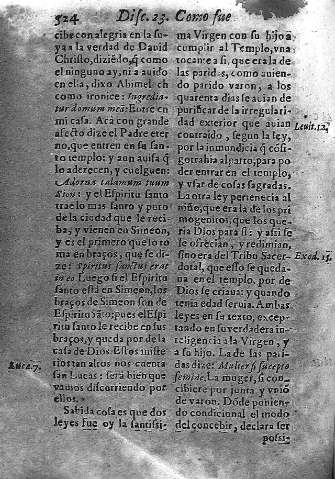 524 Disc. 23. Como fue
cibe con alegria en la su-
ya a la verdad de Dauid
Christo, diziẽdo, q̃ como
el ninguno ay, ni a auido
en ella, dixo Abimelch
como ironice: Ingredia-
tur domum meã: Entre en
mi casa. Acà con grande
afecto dize el Padre eter
no, que entren en su san-
to templo; y aun auisa q̃
lo aderecen, y cuelguen:
Adorna talamum tuum
Sion: y el Espiritu santo
trae lo mas santo y puro
de la ciudad que le reci-
ba, y vienen con Simeon,
y es el primero que lo to
ma en braços, que se di-
ze: Spiritus sanctus erat
in eo. Luego si el Espiritu
santo està en Simeon, los
braços de Simeon son de
Espiritu santo: pues el Espi
ritu santo le recibe en sus
braços, y queda por de la
casa de Dios. Estos miste
rios tan altos nos cuenta
san Lucas: serà bien que
vamos discorriendo por
ellos.
Sabida cosa es que dos
leyes fue oy la santissi-
Luca. 7.
ma Virgen con su hijo a
cumplir al Templo, vna
tocante a si, que era la de
las paridas, como auien-
do parido varon, a los
quarenta dias se auian de
purificar de la irregulari-
dad exterior que auian
contraido, segun la ley,
por la inmundicia q̃ cõsi-
go trahia al parto, para po
der entrar en el templo,
y vsar de cosas sagradas.
La otra ley pertenecia al
niño, que era la de los pri
mogenitos, que los que-
ria Dios para si: y assi se
le ofrecian, y redimian,
sino era del Tribu Sacer-
dotal, que esso se queda-
ua en el templo, por de
Dios se criaua: y quando
tenia edad seruia. Ambas
leyes en su texto, excep-
tando en su verdadera in-
teligencia a la Virgen, y
a su hijo. La de las pari-
das dize: Mulier si suscepto
semine. La muger, si con-
cibiere por junta y vniõ
de varon. Dõde ponien-
do condicional el modo
del concebir, declara ser
possi-
Leuit. 12.
Exod. 13.